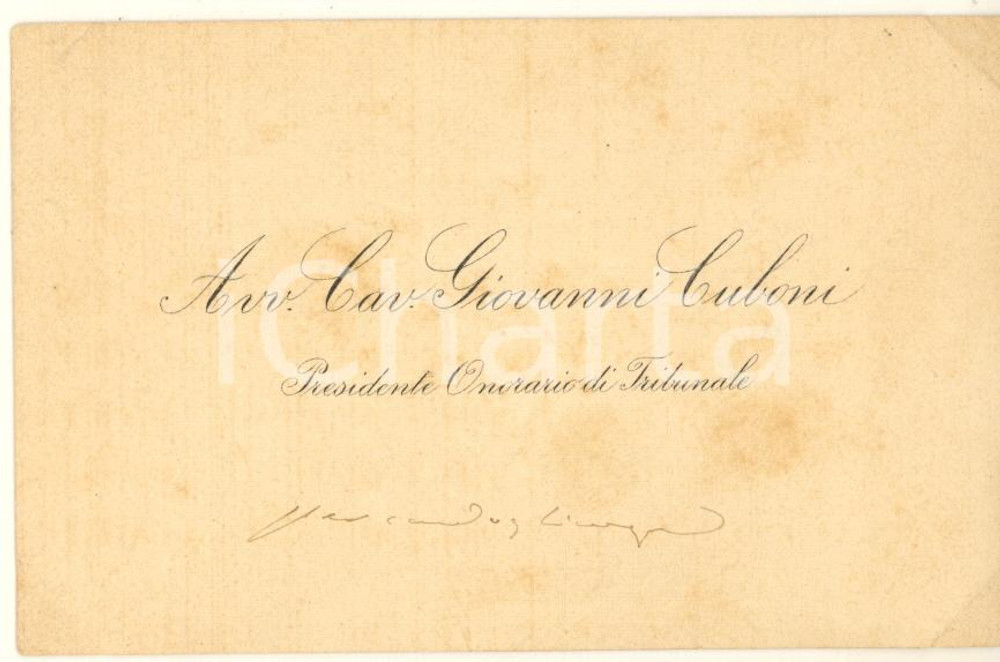 Avv. Cav. Giovanni Cuboni
iCharta
Presidente Onorario di Tribunale